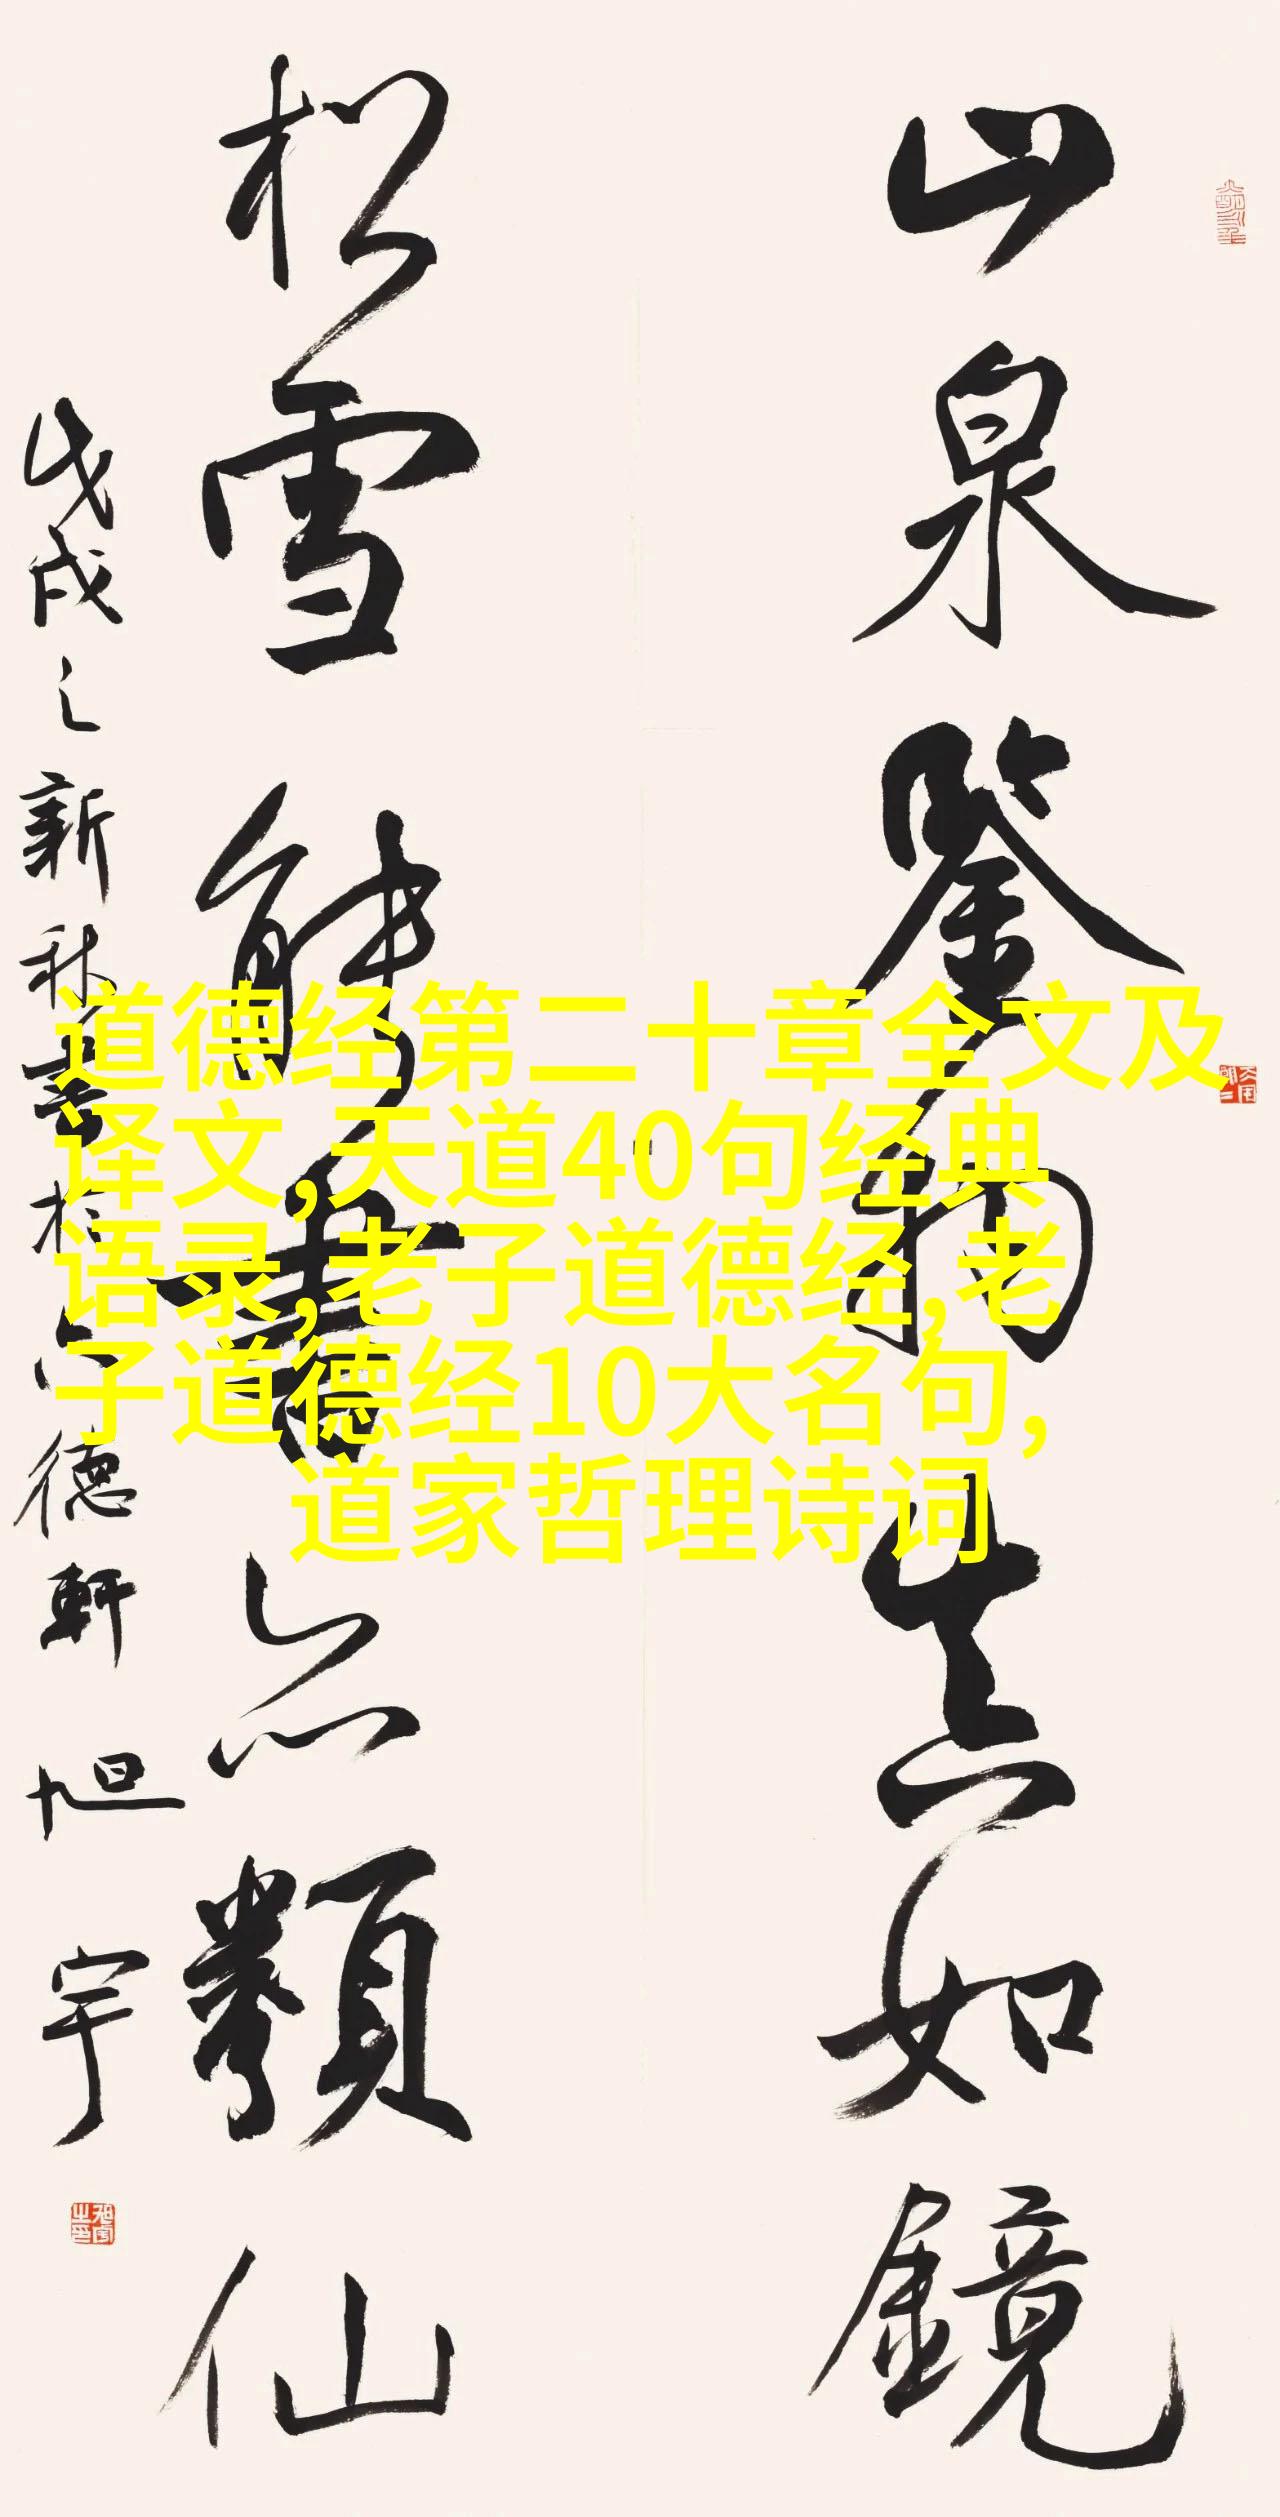 山泉鑒物真如鏡
松雪能書亦類仙
戊戌之新秋書於
德軒
旭宇
道德经第二十章全文及
译文,天道40句经典
语录,老子道德经,老
子道德经10大名句,
道家哲理诗词